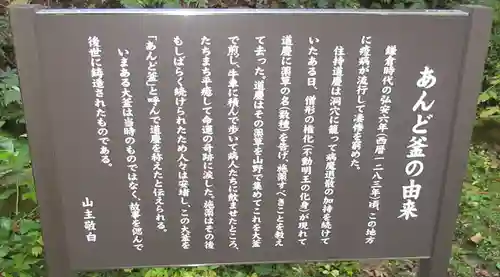 あんど釜の由来
鎌倉時代の弘安六年(西暦一二八三年)頃、この地方
に疫病が流行して凄惨を窮めた。
住持道慶は洞穴に籠って病魔退散の加持を続けて
いたある日、僧形の権化(不動明王の化身)が現れて
道慶に薬草の名(数種)を告げ、施薬すべきことを教え
て去った。道慶はその薬草を山野で集めてこれを大釜
で煎し、牛車に積んで歩いて病人たちに飲ませたところ、
たちまち平癒して命運の奇跡に浴した。施薬はその後
もしばらく続けられたため人々は安堵し、この大釜を
「あんど釜」と呼んで道慶を称えたと伝えられる。
いまある大釜は当時のものではなく、故事を偲んで
後世に鋳造されたものである。
山主敬白